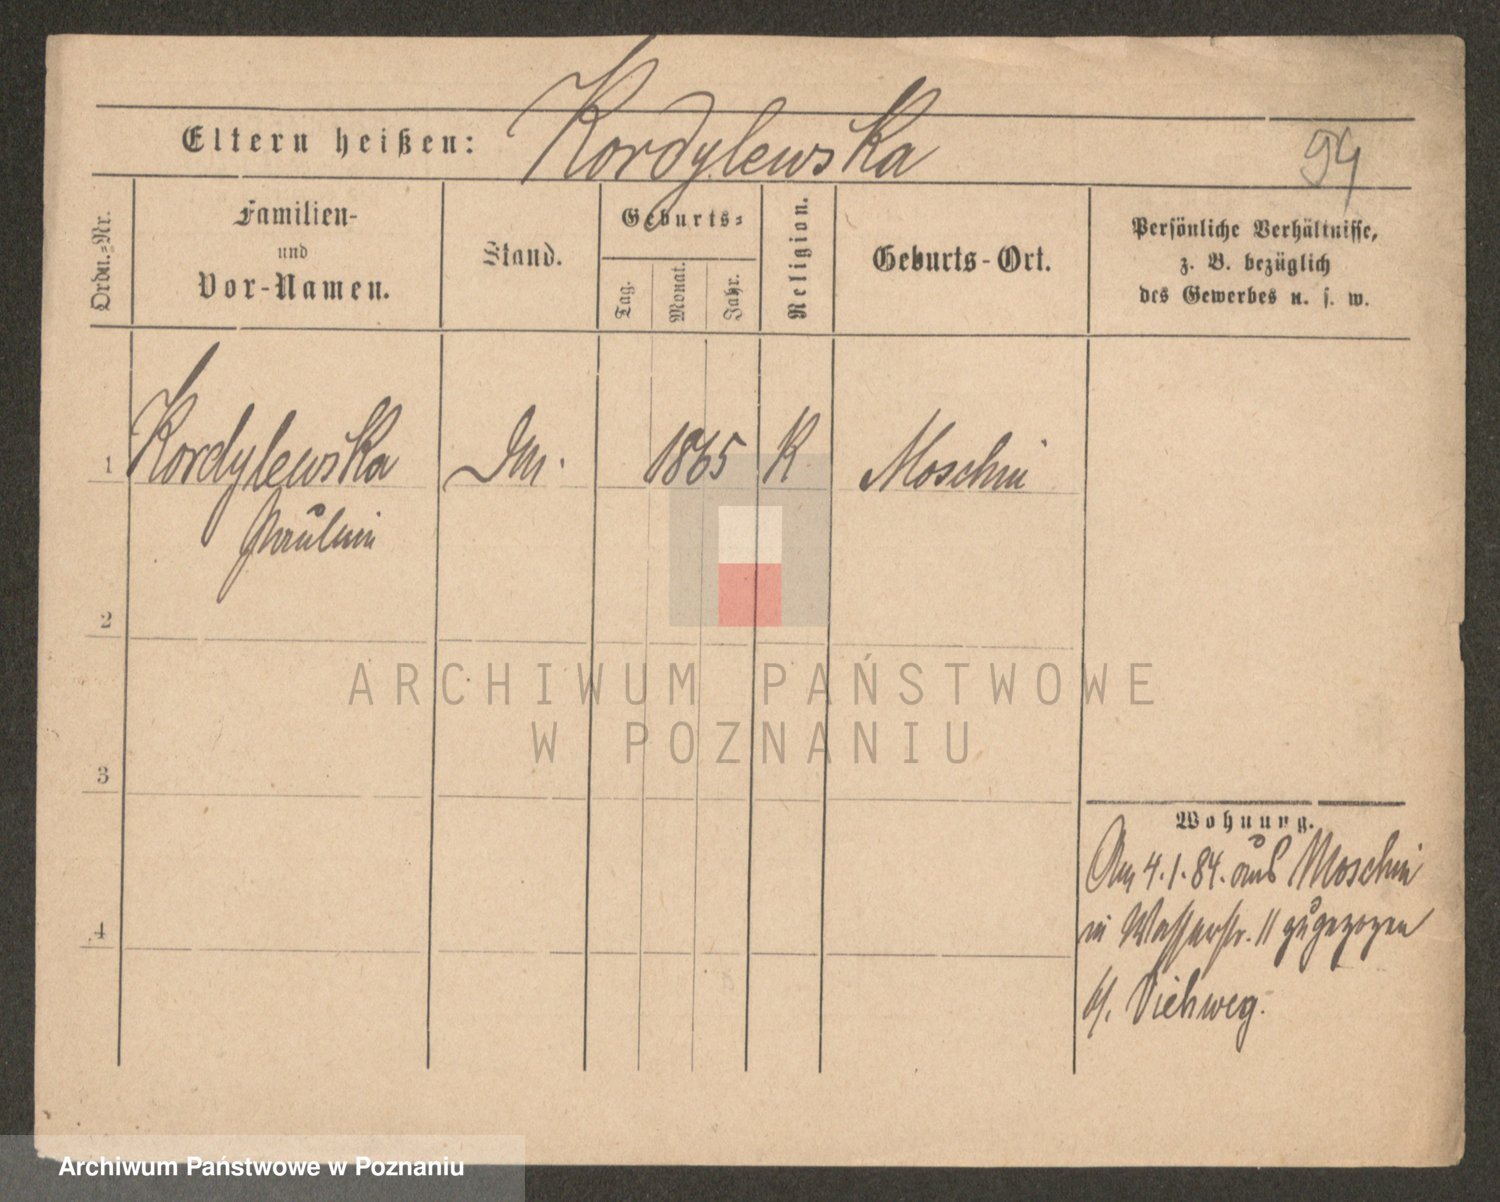 Kordylewska
Eltern heißen:
94
Ordn.-Nr.
Familien-
und
Vor-Namen.
Stand.
Geburts-
Tag.
Monat.
Jahr.
Religion.
Geburts-Ort.
Persönliche Verhältnisse,
z. B. bezüglich
des Gewerbes u. s. w.
1
Kordylewska
1865
K
Moschin
Paulin
2
ARCHIWUM PAŃSTWOWE
W POZNANIU
3
Wohnung.
Am 4.1.84. aus Moschin
in Wasserstr. 11 zugezogen
b/. Viehweg.
4
Archiwum Państwowe w Poznaniu